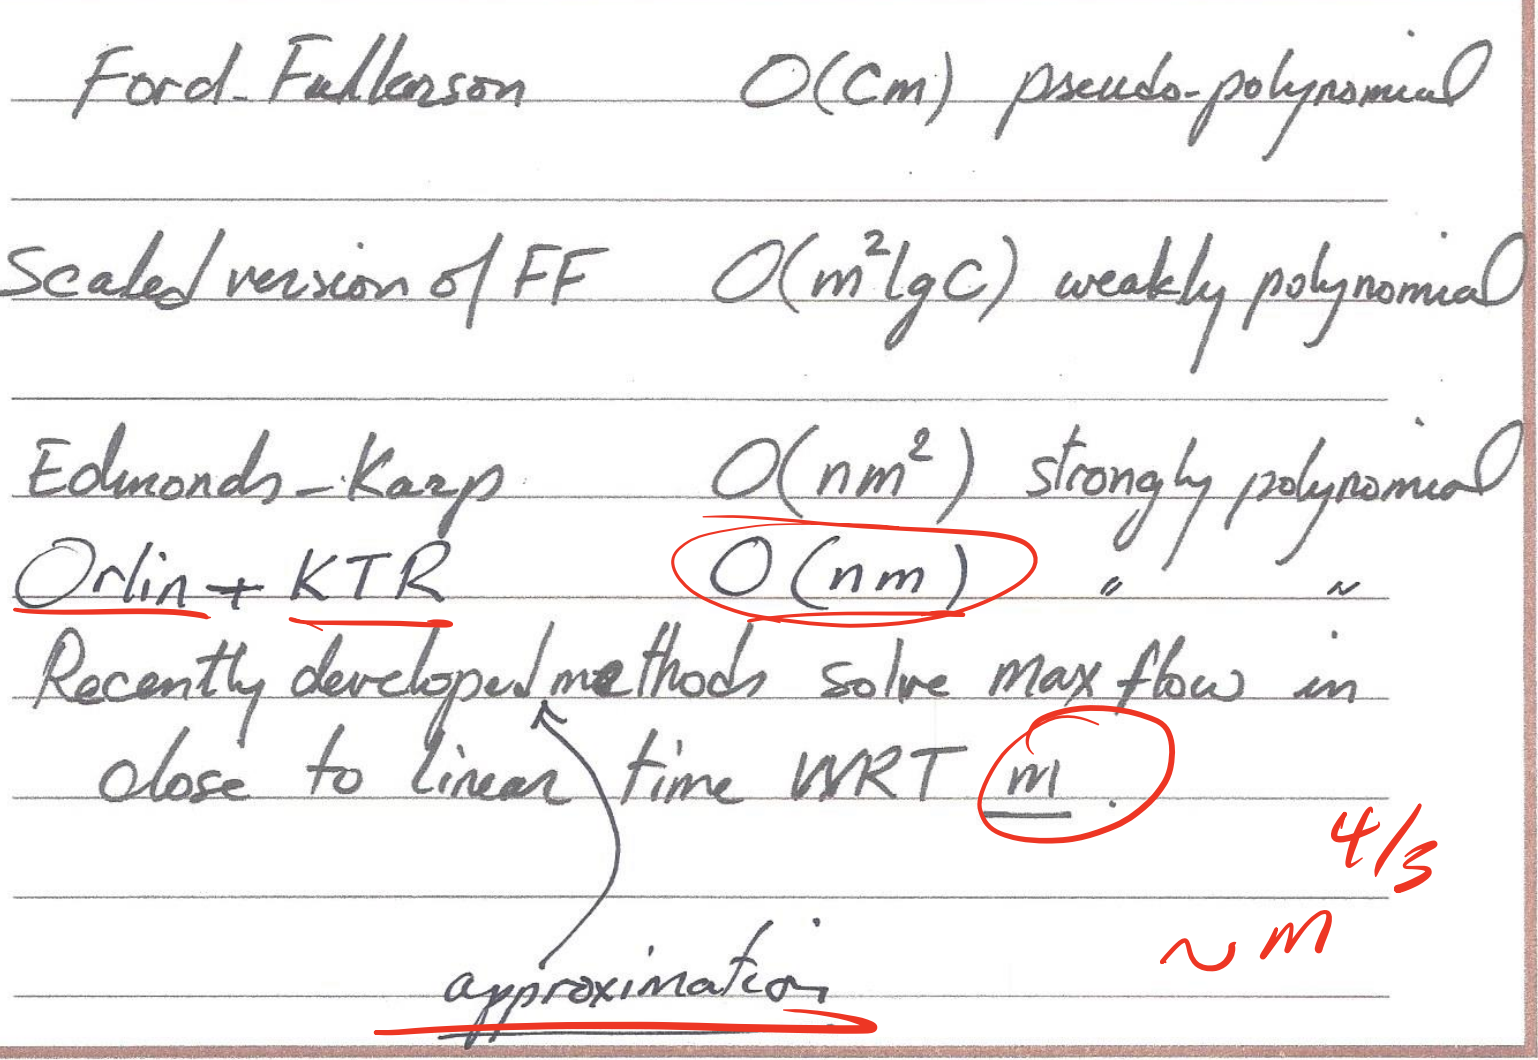 Ford-Fulkerson O(Cm) pseudo-polynomial
Scaled version of FF O(m² lg C) weakly polynomial
Edmonds-Karp O(nm²) strongly polynomial
Orlin + KTR O(nm) " ~
Recently developed methods solve max flow in
close to linear time WRT m.
~ m^4/3
approximation